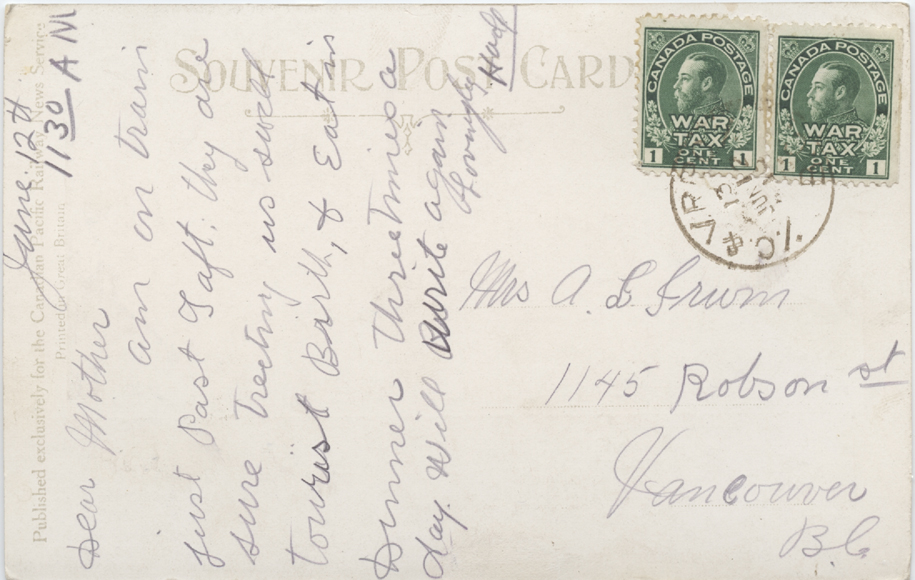 SOUVENIR POST CARD
Published exclusively for the Canadian Pacific Railway News Service
Printed in Great Britain
June. 12th
11 30 AM
Dear Mother
am on train
just Past Taft. they are
sure Treeting us swell
tourist Barth, & Eat in
Dinner thrie times a
day. Will write again
Lovingly
CANADA POSTAGE
WAR
TAX
ONE
1 CENT 1
CANADA POSTAGE
WAR
TAX
ONE
1 CENT 1
V.C. & V.R.P.O.
12
JUN
Mrs A. L. Irwin
1145 Robson st
Vancouver
B.C.